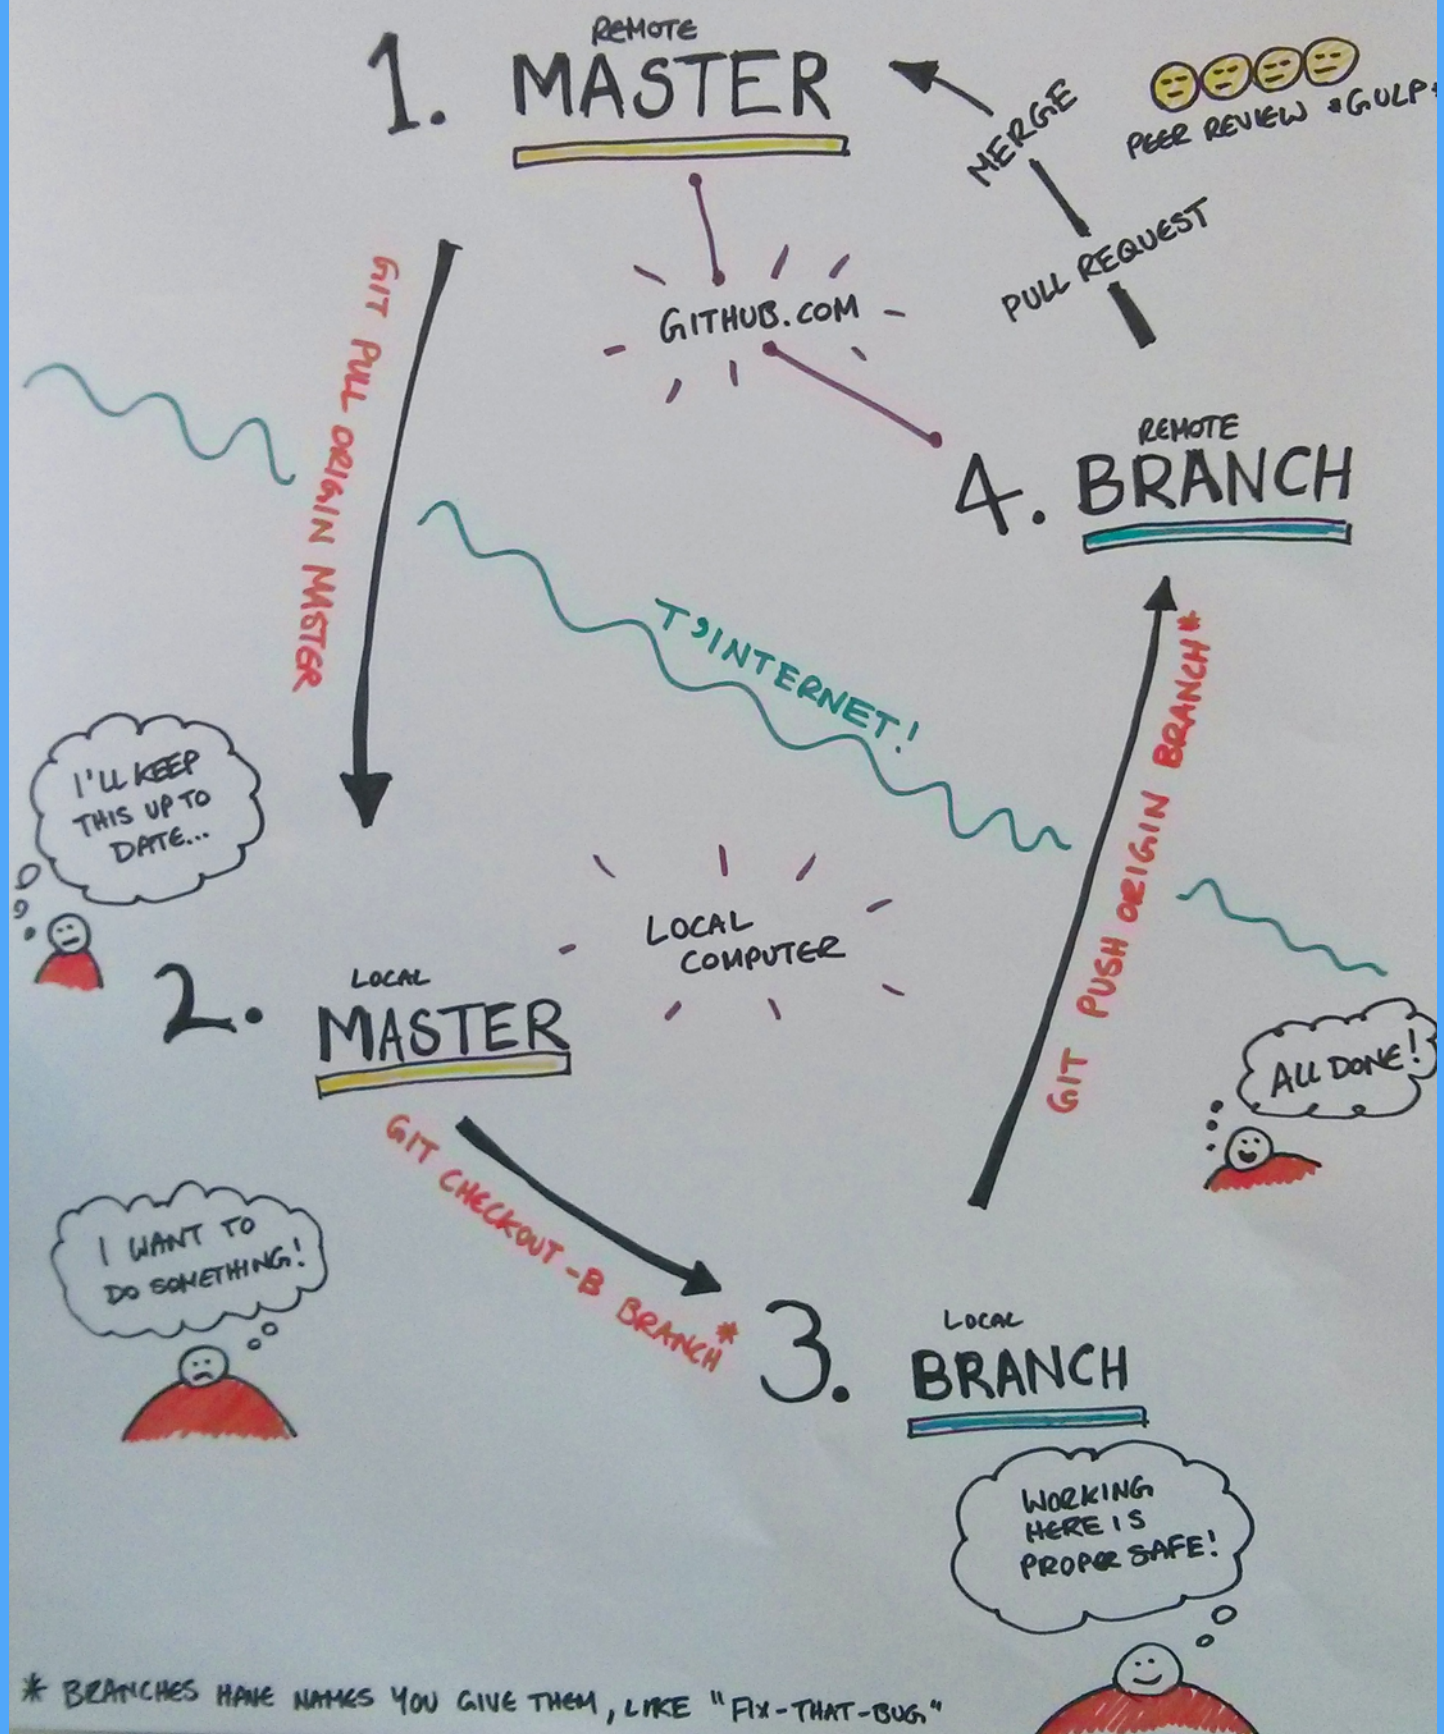 REMOTE
1. MASTER
MERGE
PEER REVIEW *GULP*
PULL REQUEST
GITHUB.COM
GIT PULL ORIGIN MASTER
REMOTE
4. BRANCH
T'INTERNET!
GIT PUSH ORIGIN BRANCH*
I'LL KEEP
THIS UP TO
DATE...
LOCAL
COMPUTER
LOCAL
2. MASTER
ALL DONE!
GIT CHECKOUT -B BRANCH*
I WANT TO
DO SOMETHING!
LOCAL
3. BRANCH
WORKING
HERE IS
PROPER SAFE!
* BRANCHES HAVE NAMES YOU GIVE THEM, LIKE "FIX-THAT-BUG"